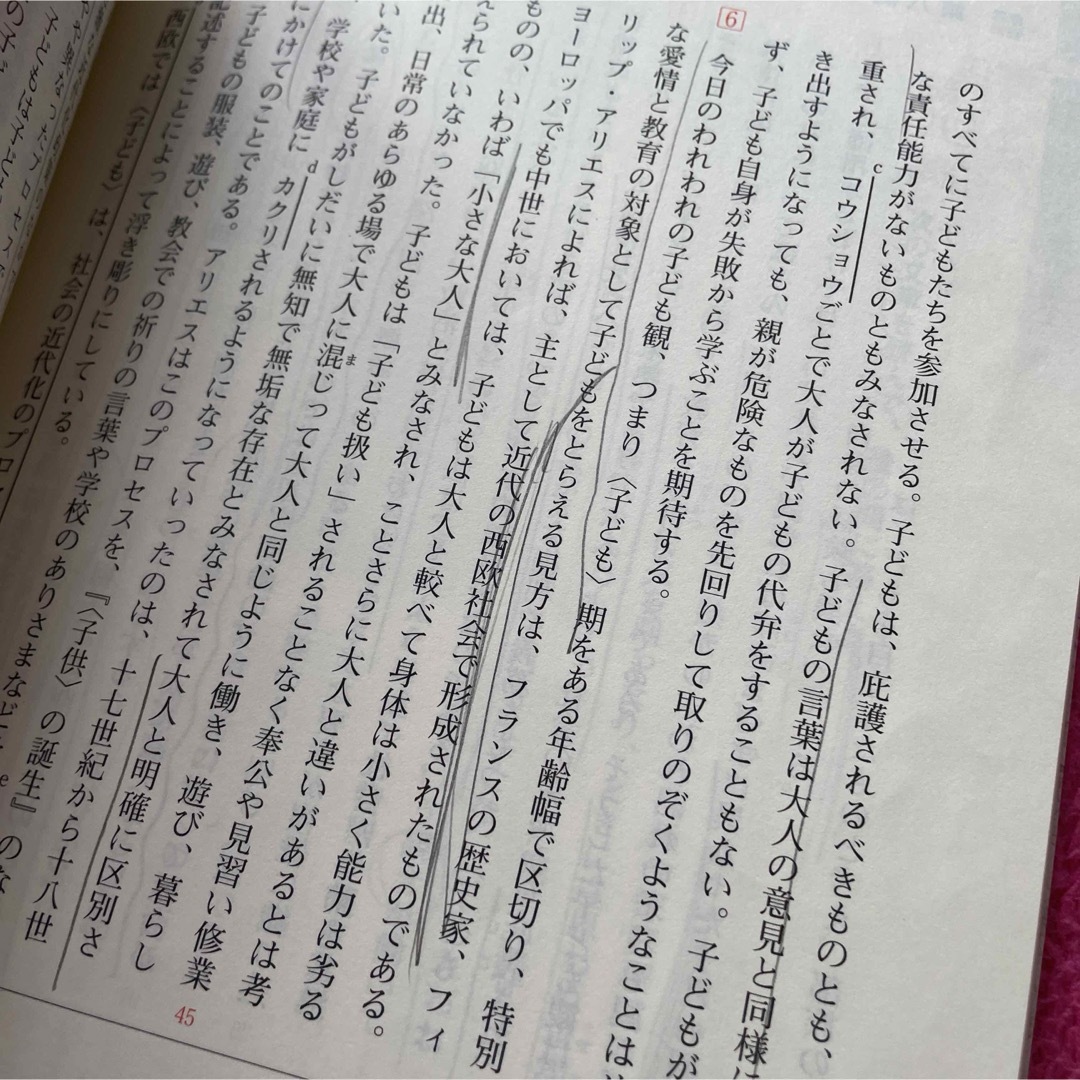 のすべてに子どもたちを参加させる。子どもは、庇護されるべきものとも、
な責任能力がないものともみなされない。子どもの言葉は大人の意見と同様に
重され、コウショウごとで大人が子どもの代弁をすることもない。子どもが
c
き出すようになっても、親が危険なものを先回りして取りのぞくようなことは
ず、子ども自身が失敗から学ぶことを期待する。
6
今日のわれわれの子ども観、つまり〈子ども〉期をある年齢幅で区切り、特別
な愛情と教育の対象として子どもをとらえる見方は、フランスの歴史家、フィ
リップ・アリエスによれば、主として近代の西欧社会で形成されたものである。
ヨーロッパでも中世においては、子どもは大人と較べて身体は小さく能力は劣る
ものの、いわば「小さな大人」とみなされ、ことさらに大人と違いがあるとは考
えられていなかった。子どもは「子ども扱い」されることなく奉公や見習い修業
出、日常のあらゆる場で大人に混じって大人と同じように働き、遊び、暮らし
ま
た。子どもがしだいに無知で無垢な存在とみなされて大人と明確に区別さ
学校や家庭にカクリされるようになっていったのは、十七世紀から十八世
d
にかけてのことである。アリエスはこのプロセスを、『〈子供〉の誕生』のな
子どもの服装、遊び、教会での祈りの言葉や学校のありさまなど
e
記述することによって浮き彫りにしている。
西欧では〈子ども〉は、社会の近代化のプロ
45